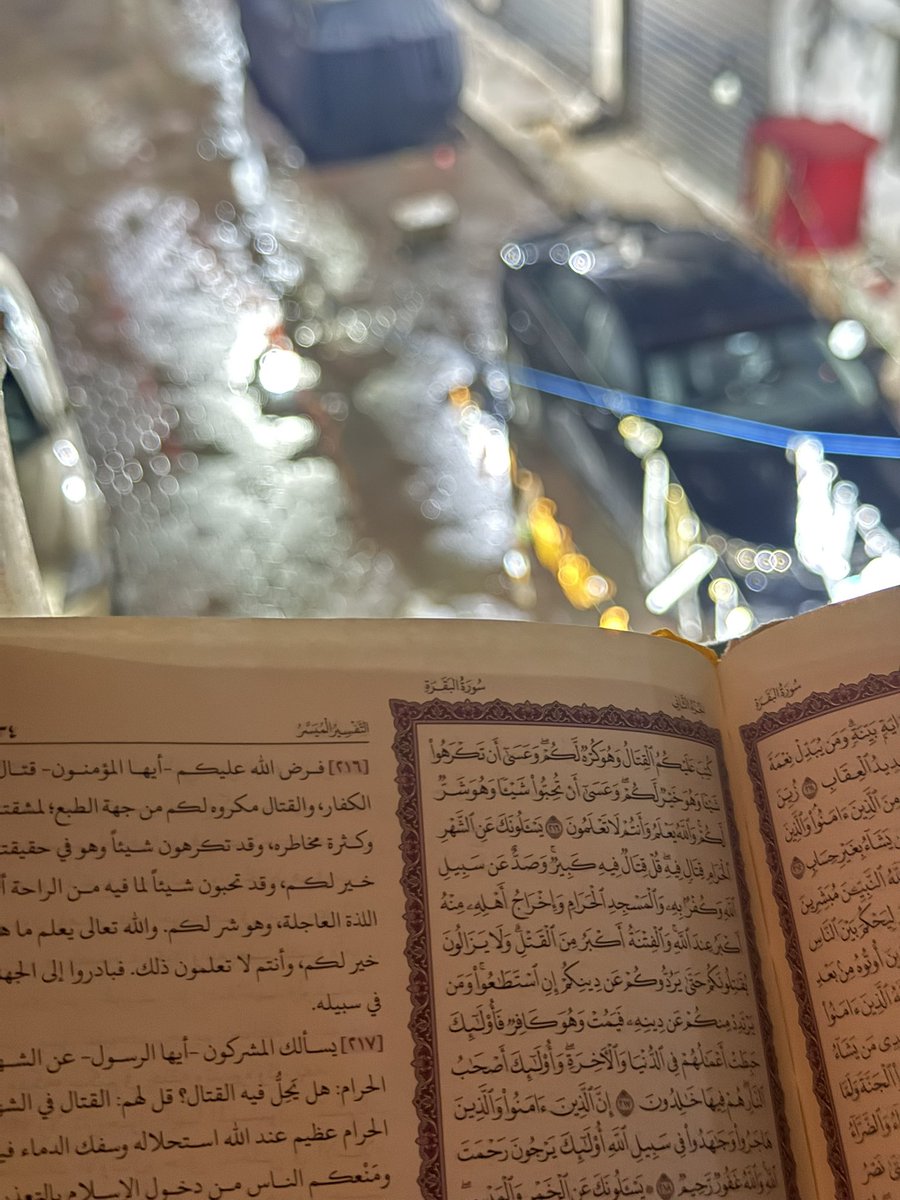 سُورَةُ البَقَرَةِ
آيَةٍ بَيِّنَةٍ وَمَن يُبَدِّلْ نِعْمَةَ
شَدِيدُ الْعِقَابِ ۝٢١١ زُيِّنَ
مِنَ الَّذِينَ ءَامَنُوا وَالَّذِينَ
مَن يَشَاءُ بِغَيْرِ حِسَابٍ ۝٢١٢
اللَّهُ النَّبِيِّينَ مُبَشِّرِينَ
لِيَحْكُمَ بَيْنَ النَّاسِ
الَّذِينَ أُوتُوهُ مِنْ بَعْدِ
اللَّهُ الَّذِينَ ءَامَنُوا
يَهْدِي مَن يَشَاءُ
الْجَنَّةَ وَلَمَّا
وَالضَّرَّاءُ
نَصْرُ
الجزء الثاني
سُورَةُ البَقَرَةِ
كُتِبَ عَلَيْكُمُ الْقِتَالُ وَهُوَ كُرْهٌ لَّكُمْ وَعَسَىٰ أَن تَكْرَهُوا
شَيْئًا وَهُوَ خَيْرٌ لَّكُمْ وَعَسَىٰ أَن تُحِبُّوا شَيْئًا وَهُوَ شَرٌّ
لَّكُمْ وَاللَّهُ يَعْلَمُ وَأَنتُمْ لَا تَعْلَمُونَ ۝٢١٦ يَسْـَٔلُونَكَ عَنِ الشَّهْرِ
الْحَرَامِ قِتَالٍ فِيهِ قُلْ قِتَالٌ فِيهِ كَبِيرٌ وَصَدٌّ عَن سَبِيلِ
اللَّهِ وَكُفْرٌ بِهِ وَالْمَسْجِدِ الْحَرَامِ وَإِخْرَاجُ أَهْلِهِ مِنْهُ
أَكْبَرُ عِندَ اللَّهِ وَالْفِتْنَةُ أَكْبَرُ مِنَ الْقَتْلِ وَلَا يَزَالُونَ
يُقَاتِلُونَكُمْ حَتَّىٰ يَرُدُّوكُمْ عَن دِينِكُمْ إِنِ اسْتَطَاعُوا وَمَن
يَرْتَدِدْ مِنكُمْ عَن دِينِهِ فَيَمُتْ وَهُوَ كَافِرٌ فَأُولَٰئِكَ
حَبِطَتْ أَعْمَالُهُمْ فِي الدُّنْيَا وَالْآخِرَةِ وَأُولَٰئِكَ أَصْحَابُ
النَّارِ هُمْ فِيهَا خَالِدُونَ ۝٢١٧ إِنَّ الَّذِينَ ءَامَنُوا وَالَّذِينَ
هَاجَرُوا وَجَاهَدُوا فِي سَبِيلِ اللَّهِ أُولَٰئِكَ يَرْجُونَ رَحْمَتَ
اللَّهِ وَاللَّهُ غَفُورٌ رَّحِيمٌ ۝٢١٨ يَسْـَٔلُونَكَ عَنِ الْخَمْرِ وَالْمَيْسِرِ
التَّفْسِيرُ المُيَسَّرُ
٣٤
[٢١٦] فرض الله عليكم -أيها المؤمنون- قتال
الكفار، والقتال مكروه لكم من جهة الطبع؛ لمشقته
وكثرة مخاطره، وقد تكرهون شيئاً وهو في حقيقته
خير لكم، وقد تحبون شيئاً لما فيه من الراحة
اللذة العاجلة، وهو شر لكم. والله تعالى يعلم ما هو
خير لكم، وأنتم لا تعلمون ذلك. فبادروا إلى الجهاد
في سبيله.
[٢١٧] يسألك المشركون -أيها الرسول- عن الشهر
الحرام: هل يَحِلُّ فيه القتال؟ قل لهم: القتال في الشهر
الحرام عظيم عند الله استحلاله وسفك الدماء فيه
ومَنْعكم الناس من دخول الإسلام بالتعذيب